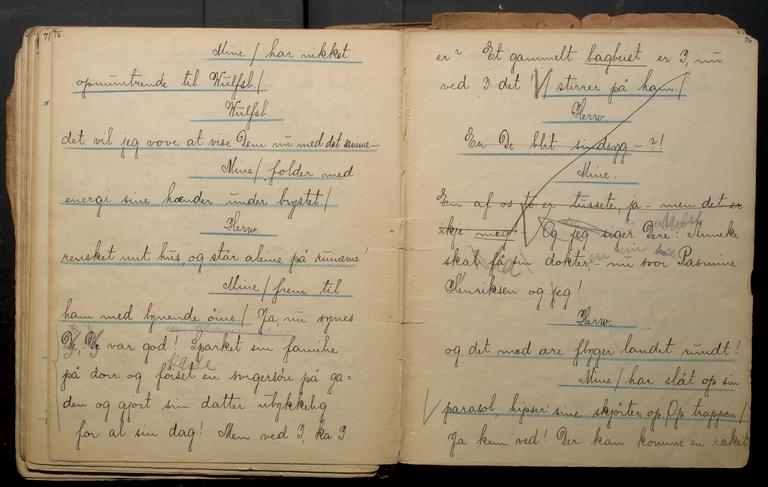 71 75
Mine / har nikket
opmuntrende til Wulfsb. /
Wulfsb.
det vil jeg vove at vise Dem nu med det samme –
Mine / folder med
energi sine hænder under brystet /
Herw.
rensket mit hus, og står alene på ruinerne!
Mine / frem til
ham med lynende öine / Ja, nu synes
De, De var god! Sparket sin familie
på dorr og forset en svigersön på ga=
den og gjort sin datter ulykkelig
for al sin dag! Men ved I, ka I
er? Et gammelt bagbeist er I, nu
ved I det! / stirrer på ham /
Herw.
Er De blit sindsyg – ?!
Mine.
En af os to er tussete, ja – men det er
ikje meg! Og jeg siger Dere: Anneke
skal få sin dokter – nu svor Rasmine
Henriksen og jeg!
Herw.
og det med ære flyger landet rundt!
Mine / har slåt op sin
parasol, hipser sine skjörter op. Op trappen /
Ja kem ved! Der kan komme en raket